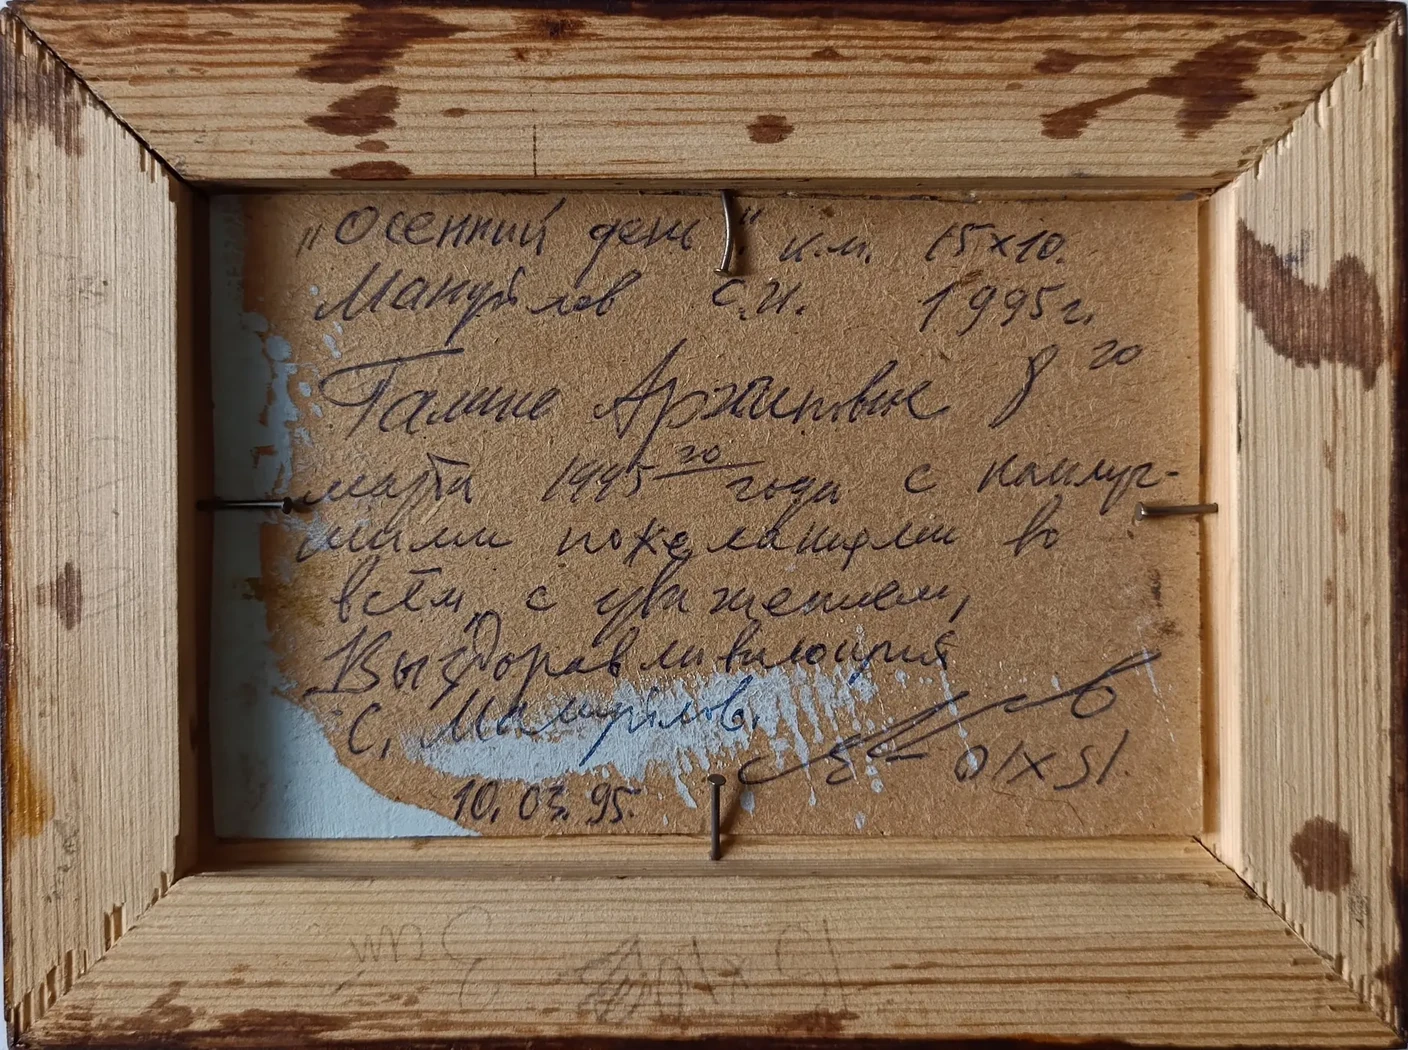 "Осенний день" к.м. 15х10.
Мануйлов С.И. 1995г.
Галине Архиповне 8го
марта 1995го года с наилуч-
шими пожеланиями во
всём, с уважением,
Выздоравливающий
С. Мануйлов.
10.03.95.
15х10
15х10
3 шт